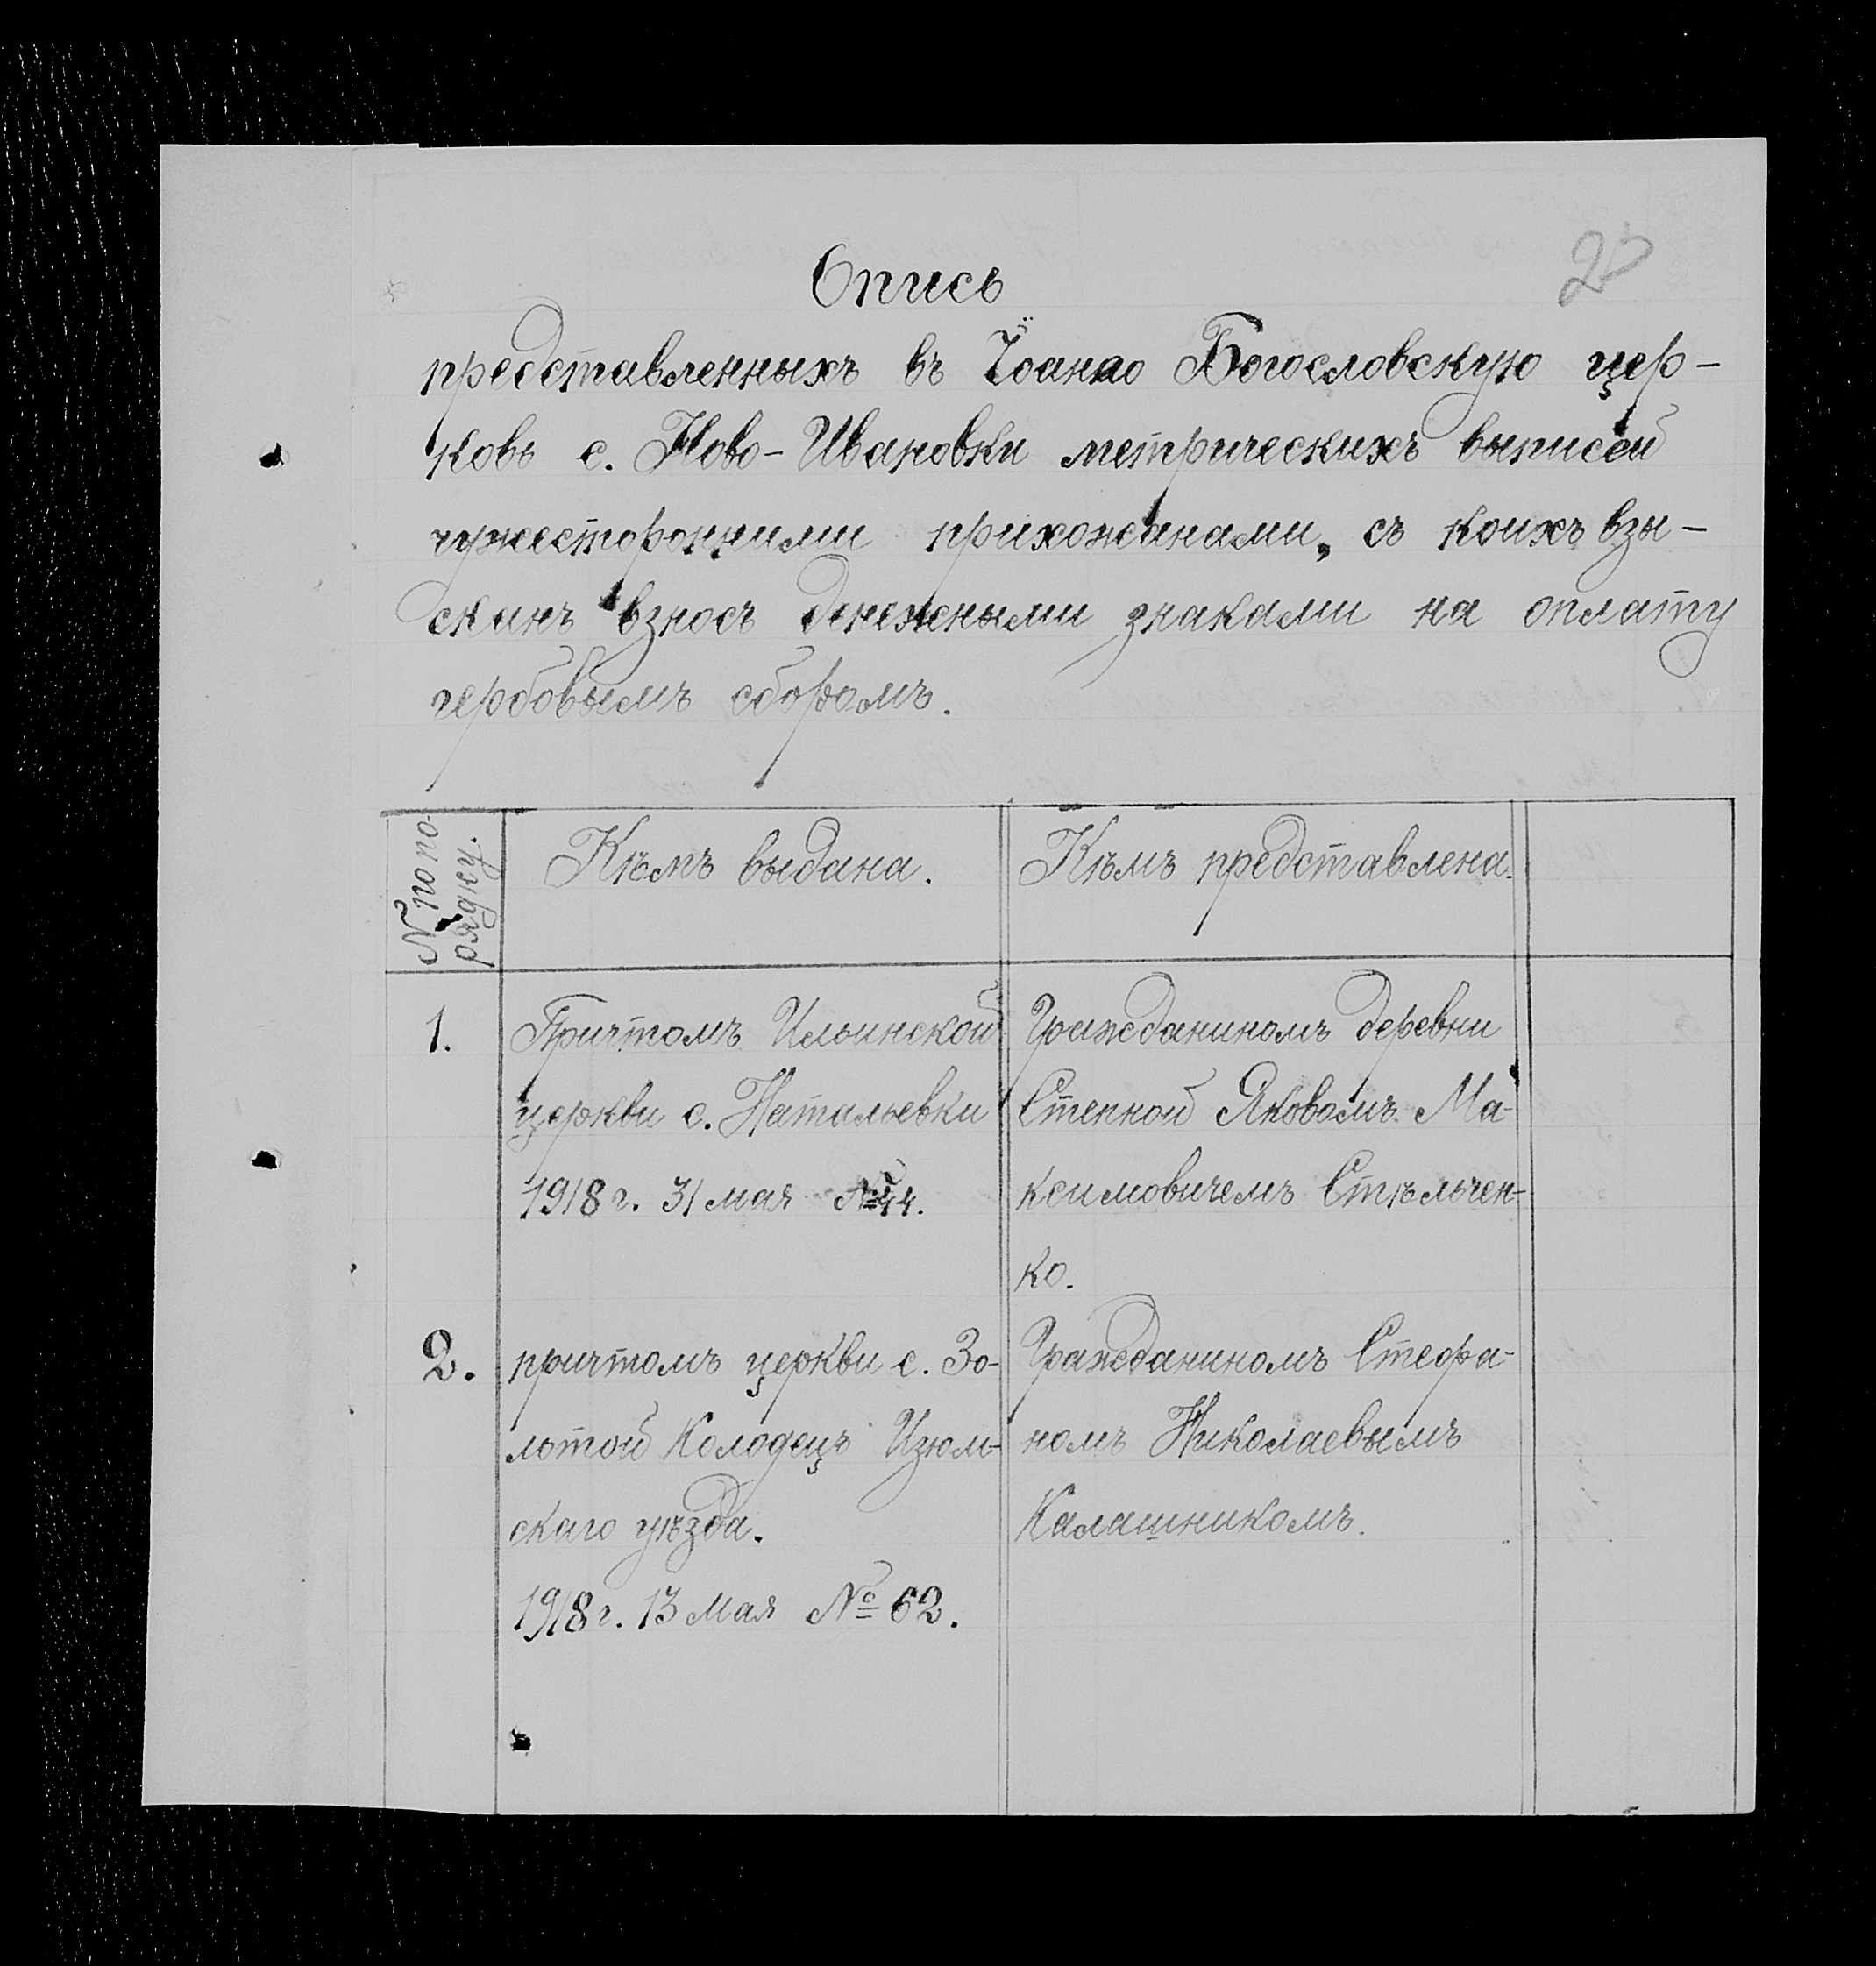 2
Опись
представленныхъ въ Іоанно Богословскую цер-
ковь с. Ново-Ивановки метрическихъ выписей
чужесторонними прихожанами, съ коихъ взы-
сканъ взносъ денежными знаками на оплату
гербовымъ сборомъ.
№ по по-
рядку.
Кѣмъ выдана.
Кѣмъ представлена.
1.
Причтомъ Ильинской
церкви с. Натальевки
1918 г. 31 мая №44.
Гражданиномъ деревни
Степной Яковомъ Ма-
ксимовичемъ Стѣльчен-
ко.
2.
причтомъ церкви с. Зо-
лотой Колодецъ Изюм-
скаго уѣзда.
1918 г. 13 мая № 62.
Гражданиномъ Стефа-
номъ Николаевымъ
Калашникомъ.